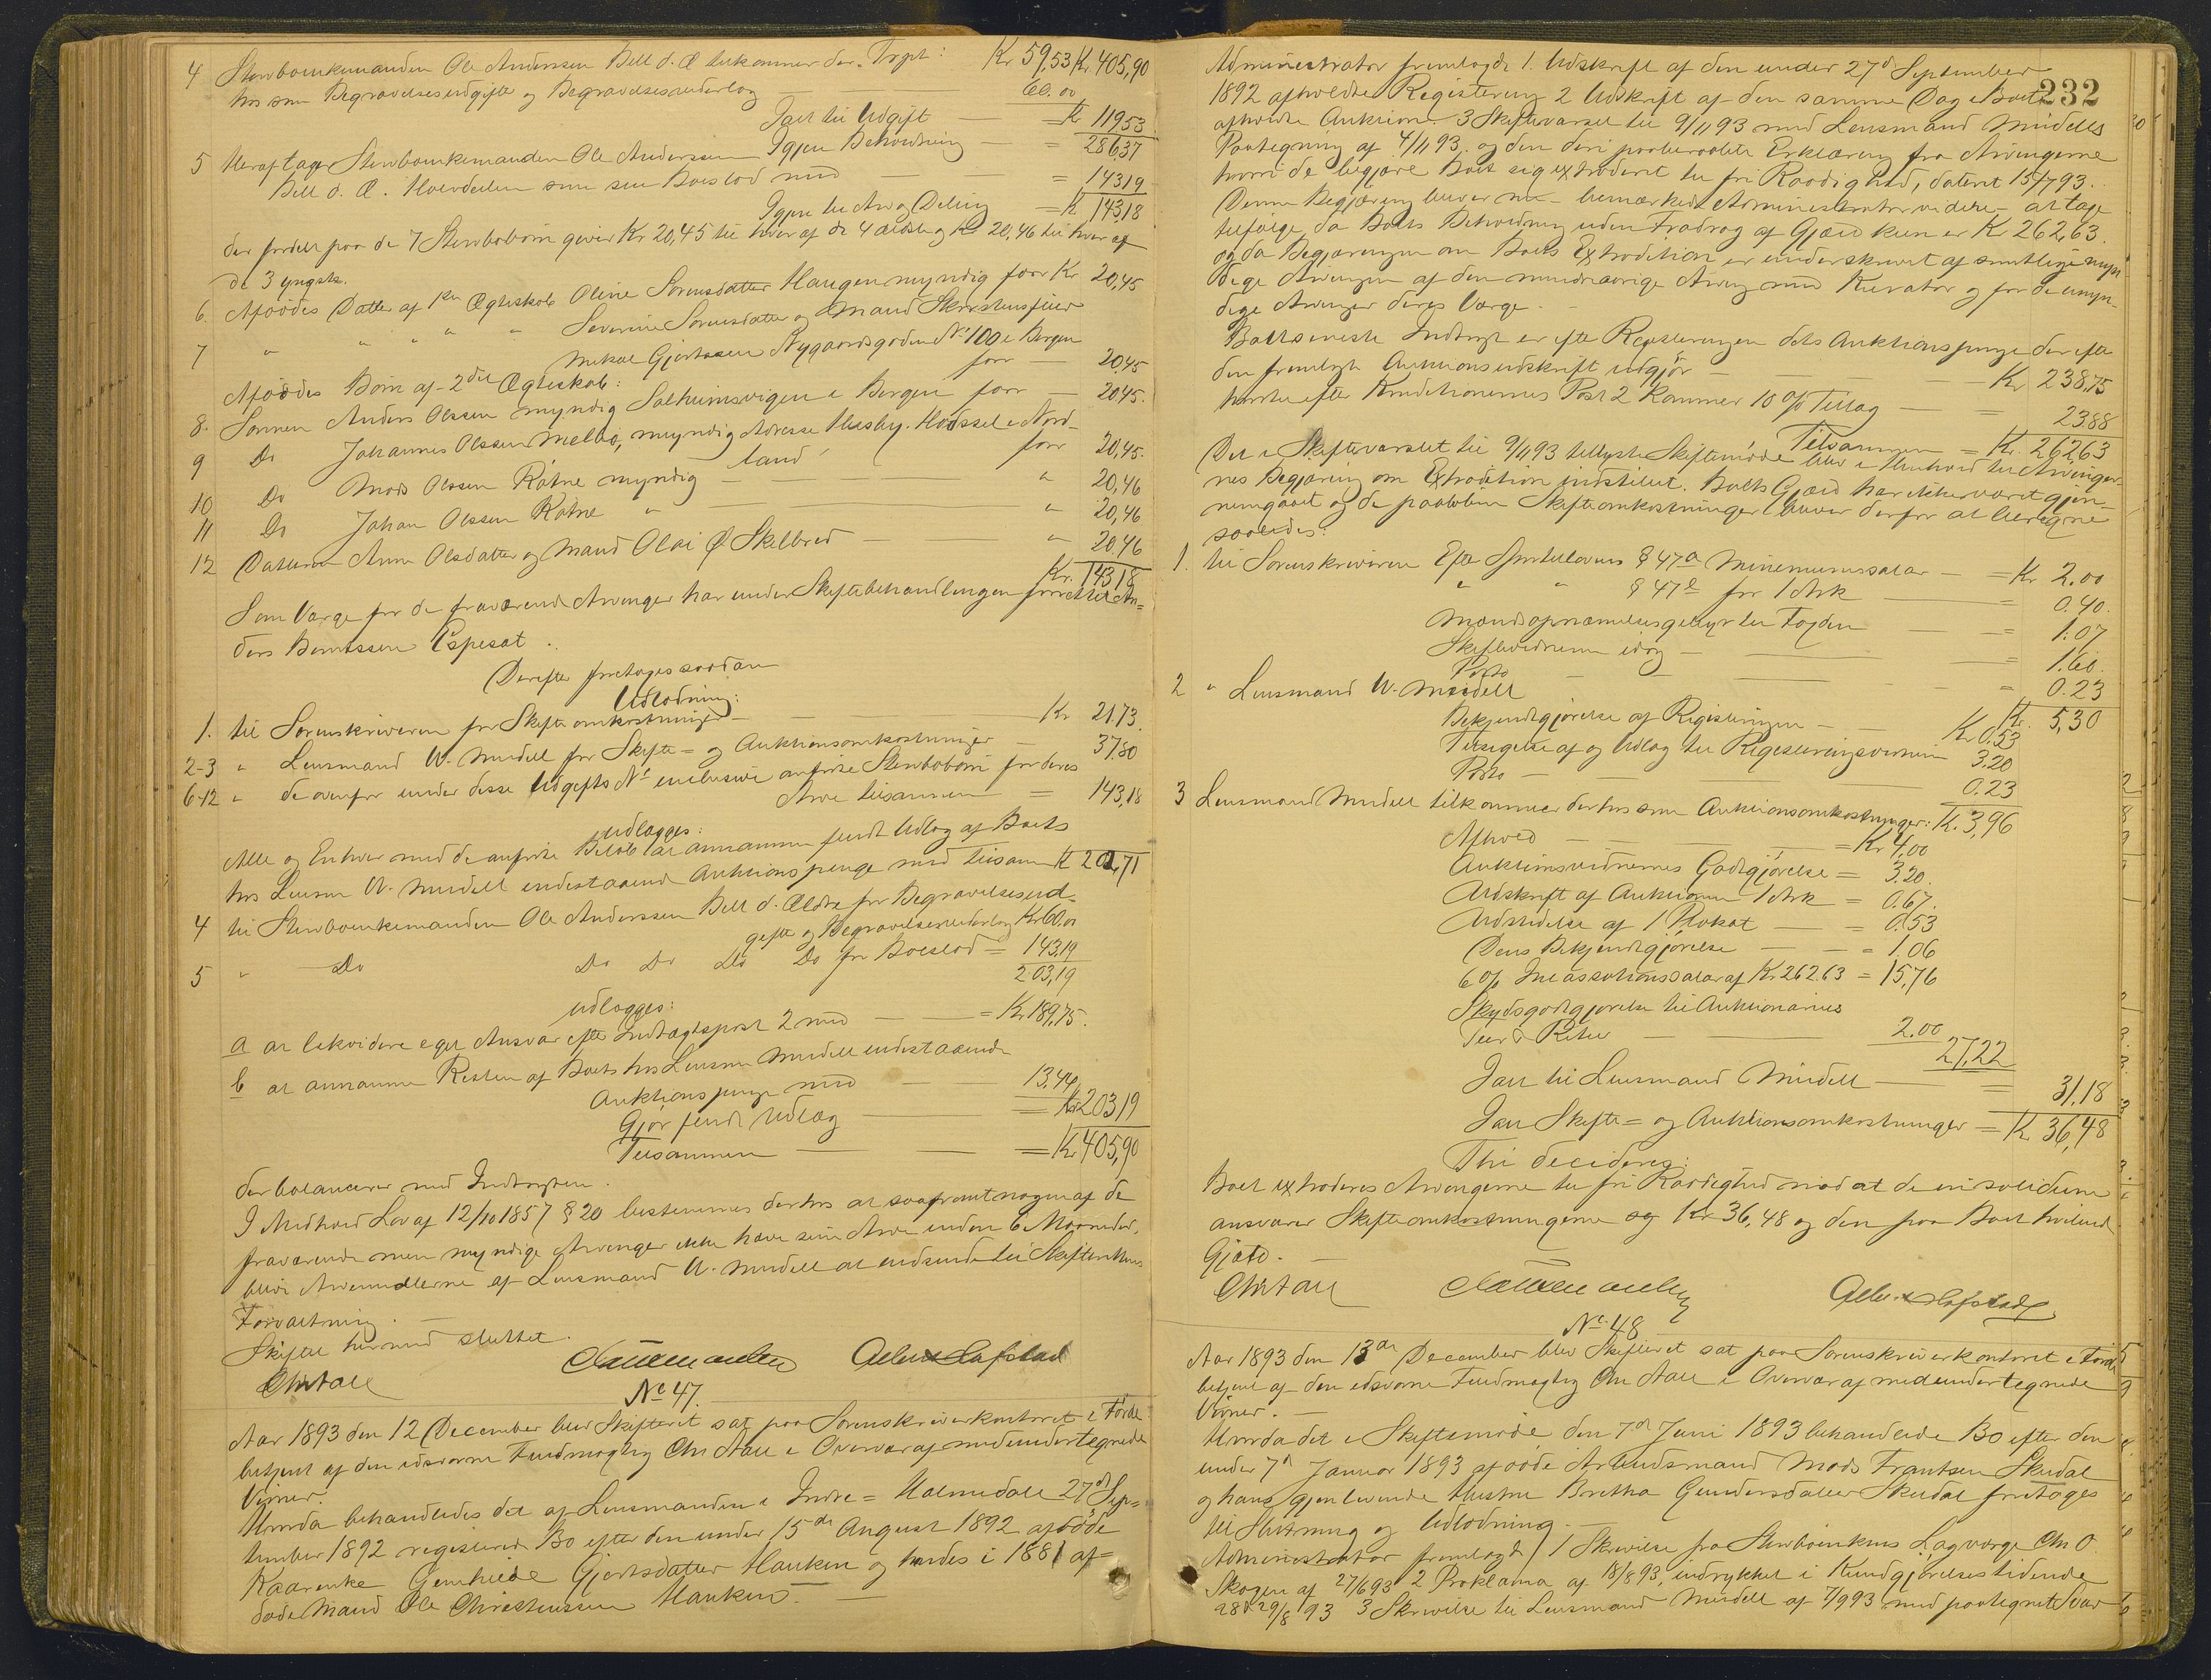 4 Stervboenkemanden Ole Anderssen Bell d. Æ tilkommer der. Transpt: Kr 59,53 Kr 405,90
hos som Begravelsesudgifter og Begravelsesvederlag — 60.00
Ialt til Udgift — = Kr 119,53
Igjen Beholdning — = 286,37
5 Heraf tager Stervboenkemanden Ole Anderssen
Bell d. Æ. Halvdelen som sin Boeslod med — = 143,19
Igjen til Arv og Deling = Kr 143,18
der fordelt paa de 7 Stervbobørn giver Kr 20,45 til hver af de 4 ældste og Kr 20,46 til hver af
de 3 yngste.
6. Afdødes Datter af 1ste Ægteskab Oline Sørensdatter Haugen myndig faar Kr 20,45
7 " " " " Severine Sørensdatter og Mand Skorstensfeier
Mikal Gjertsen Nygaardsgaden No 100 i Bergen
faar — 20,45
Afdødes Børn af 2det Ægteskab:
8. Sønnen Anders Olssen myndig Solheimsvigen i Bergen faar — 20,45.
9 Do Johannes Olssen Melbø, myndig Adresse Husby. Hadssel i Nord-
land faar 20,45.
10 Do Mads Olssen Råtne myndig — " 20,46
11 Do Johan Olssen Råtne " — " 20,46
12 Datteren Anne Olsdatter og Mand Olai Skilbred — " 20,46
Kr. 143,18
Som Værge for de fraværende Arvinger har under Skiftebehandlingen forrettet An-
ders Berntssen Espesæt.
Derefter foretoges saadan
Udlodning:
1. til Sorenskriveren for Skifteomkostninger — Kr 21.73.
2-3 " Lensmand W. Mindell for Skifte- og Auktionsomkostninger — 37.80
6-12 " de ovenfor under disse Udgifts No inclusive anførte Stervbobørn for deres
Arv tilsammen — = 143,18
udlægges:
Alle og Enhver med de anførte Beløb at annamme fuldt Udlæg af Boets
hos Lensm W. Mindell indestaaende Auktionspenge med tilsam Kr 202,71
4 til Stervboenkemanden Ole Anderssen Bell d. Ældre for Begravelsesud-
gifter og Begravelsesvederlag Kr 60.00
5 " Do Do Do Do Do for Boeslod = 143,19
203,19
udlægges:
a at likvidere eget Ansvar efter Indtægtspost 2 med — = Kr 189,75.
b at annamme Resten af Boets hos Lensm Mindell indestaaende
Auktionspenge med — 13,44
Gjør fuldt Udlæg — = Kr 203,19
Tilsammen — = Kr 405,90
der balancerer med Indtægten.
I Medhold Lov af 12/10 1857 § 20 bestemmes derhos at saafremt nogen af de
fraværende men myndige Arvinger ikke hæve sin Arv inden 6 Maaneder,
blive Arvemidlerne af Lensmand W. Mindell at indsende til Skifterettens
Forvaltning. —
Skiftet hermed sluttet.
Chr Aall
No 47.
Aar 1893 den 12 December blev Skifteret sat paa Sorenskriverkontoret i Førde
betjent af den edsvorne Fuldmægtig Chr Aall i Overvær af medundertegnede
Vidner.
Hvorda behandledes det af Lensmanden i Indre-Holmedal 27de Sep-
tember 1892 registrerede Bo efter den under 15de August 1892 afdøde
Kaarenke Gjertsdatter Hauken og hendes i 1881 af-
døde Mand Ole Christenssen Hauken. —
232
Administrator fremlagde 1. Udskrift af den under 27de September
1892 afholdte Registering 2 Udskrift af den samme Dag i Boet
afholdte Auktion. 3 Skiftevarsel til 9/11 93 med Lensmand Mindells
Paategning af 4/11 93. og den deri paaberaabte Erklæring fra Arvingerne
hvori de begjære Boet sig extraderet til fri Raadighed, dateret 15/7 93.
Denne Begjæring bliver nu — bemærkede Administrator videre — at tage
tilfølge, da Boets Beholdning uden Fradrag af Gjæld kun er Kr 262,63.
og da Begjæringen om Boets Extradition er underskrevet af samtlige myn-
dige Arvinger af den mindreaarige Arving med Kurator og for de umyn-
dige Arvinger deres Værge. —
Boets eneste Indtægt er efter Registeringen dets Auktionspenge der efter
den fremlagte Auktionsudskrift udgjør — Kr 238,75
hvortil efter Konditionernes Post 2 kommer 10 % Tillæg — = 23,88
Tilsammen = Kr. 262,63
Det i Skiftevarslet til 9/11 93 tillyste Skiftemøde blev i Henhold til Arvinger-
nes Begjæring om Extradition indstillet. Boets Gjæld har ikke været gjen-
nemgaaet og de paaløbne Skifteomkostninger bliver derfor at beregne
saaledes:
1. til Sorenskriveren Efter Sportellovens § 47a Minimumssalær — = Kr 2.00
" " § 47e for 1 Ark — = 0.40.
Mandsopnævnelsesgebyr til Fogden — = 1.07
Skiftevidnerne idag — = 1.60.
Porto — = 0.23
Kr. 5,30
2 " Lensmand W. Mindell
Bekjendtgjørelse af Registeringen — Kr 0,53
Tilsigelse af og Udlæg til Registeringsvidnerne 3.20
Porto — 0.23
Kr. 3,96
3 Lensmand Mindell tilkommer derhos som Auktionsomkostninger:
Afhold — = Kr 4,00
Auktionsvidnernes Godtgjørelse = 3.20.
Udskrift af Auktionen 1 Ark = 0.67.
Udstedelse af 1 Plakat — = 0.53
Dens Bekjendtgjørelse — = 1.06
6 % Incassationssalær af Kr 262.63 = 15,76
Skydsgodtgjørelse til Auktionarius
Tur & Retur — 2.00
27,22
Ialt til Lensmand Mindell — = 31,18
Ialt Skifte- og Auktionsomkostninger = Kr 36,48
Thi decideres:
Boet extraderes Arvingerne til fri Raadighed mod at de in solidum
ansvarer Skifteomkostningerne Kr 36,48 og den paa Boet hvilende
Gjæld. —
Chr Aall
No 48
Aar 1893 den 13de December blev Skifteret sat paa Sorenskriverkontoret i Førde
betjent af den edsvorne Fuldmægtig Chr Aall i Overvær af medundertegnede
Vidner. —
Hvorda det i Skiftemøde den 7de Juni 1893 behandlede Bo efter den
under 7de Januar 1893 afdøde Arbeidsmand Mads Frantsen Skudal
og hans gjenlevende Hustru Bretha Gundersdatter Skudal foretoges
til Slutning og Udlodning. —
Administrator fremlagde 1 Skrivelse fra Stervboenkens Lagværge Chr O.
Skogen af 27/6 93 2 Proklama af 18/8 93, indrykket i Kundgjørelsestidende
28 & 29/8 93 3 Skrivelse til Lensmand Mindell af 7/9 93 med paategnet Svar